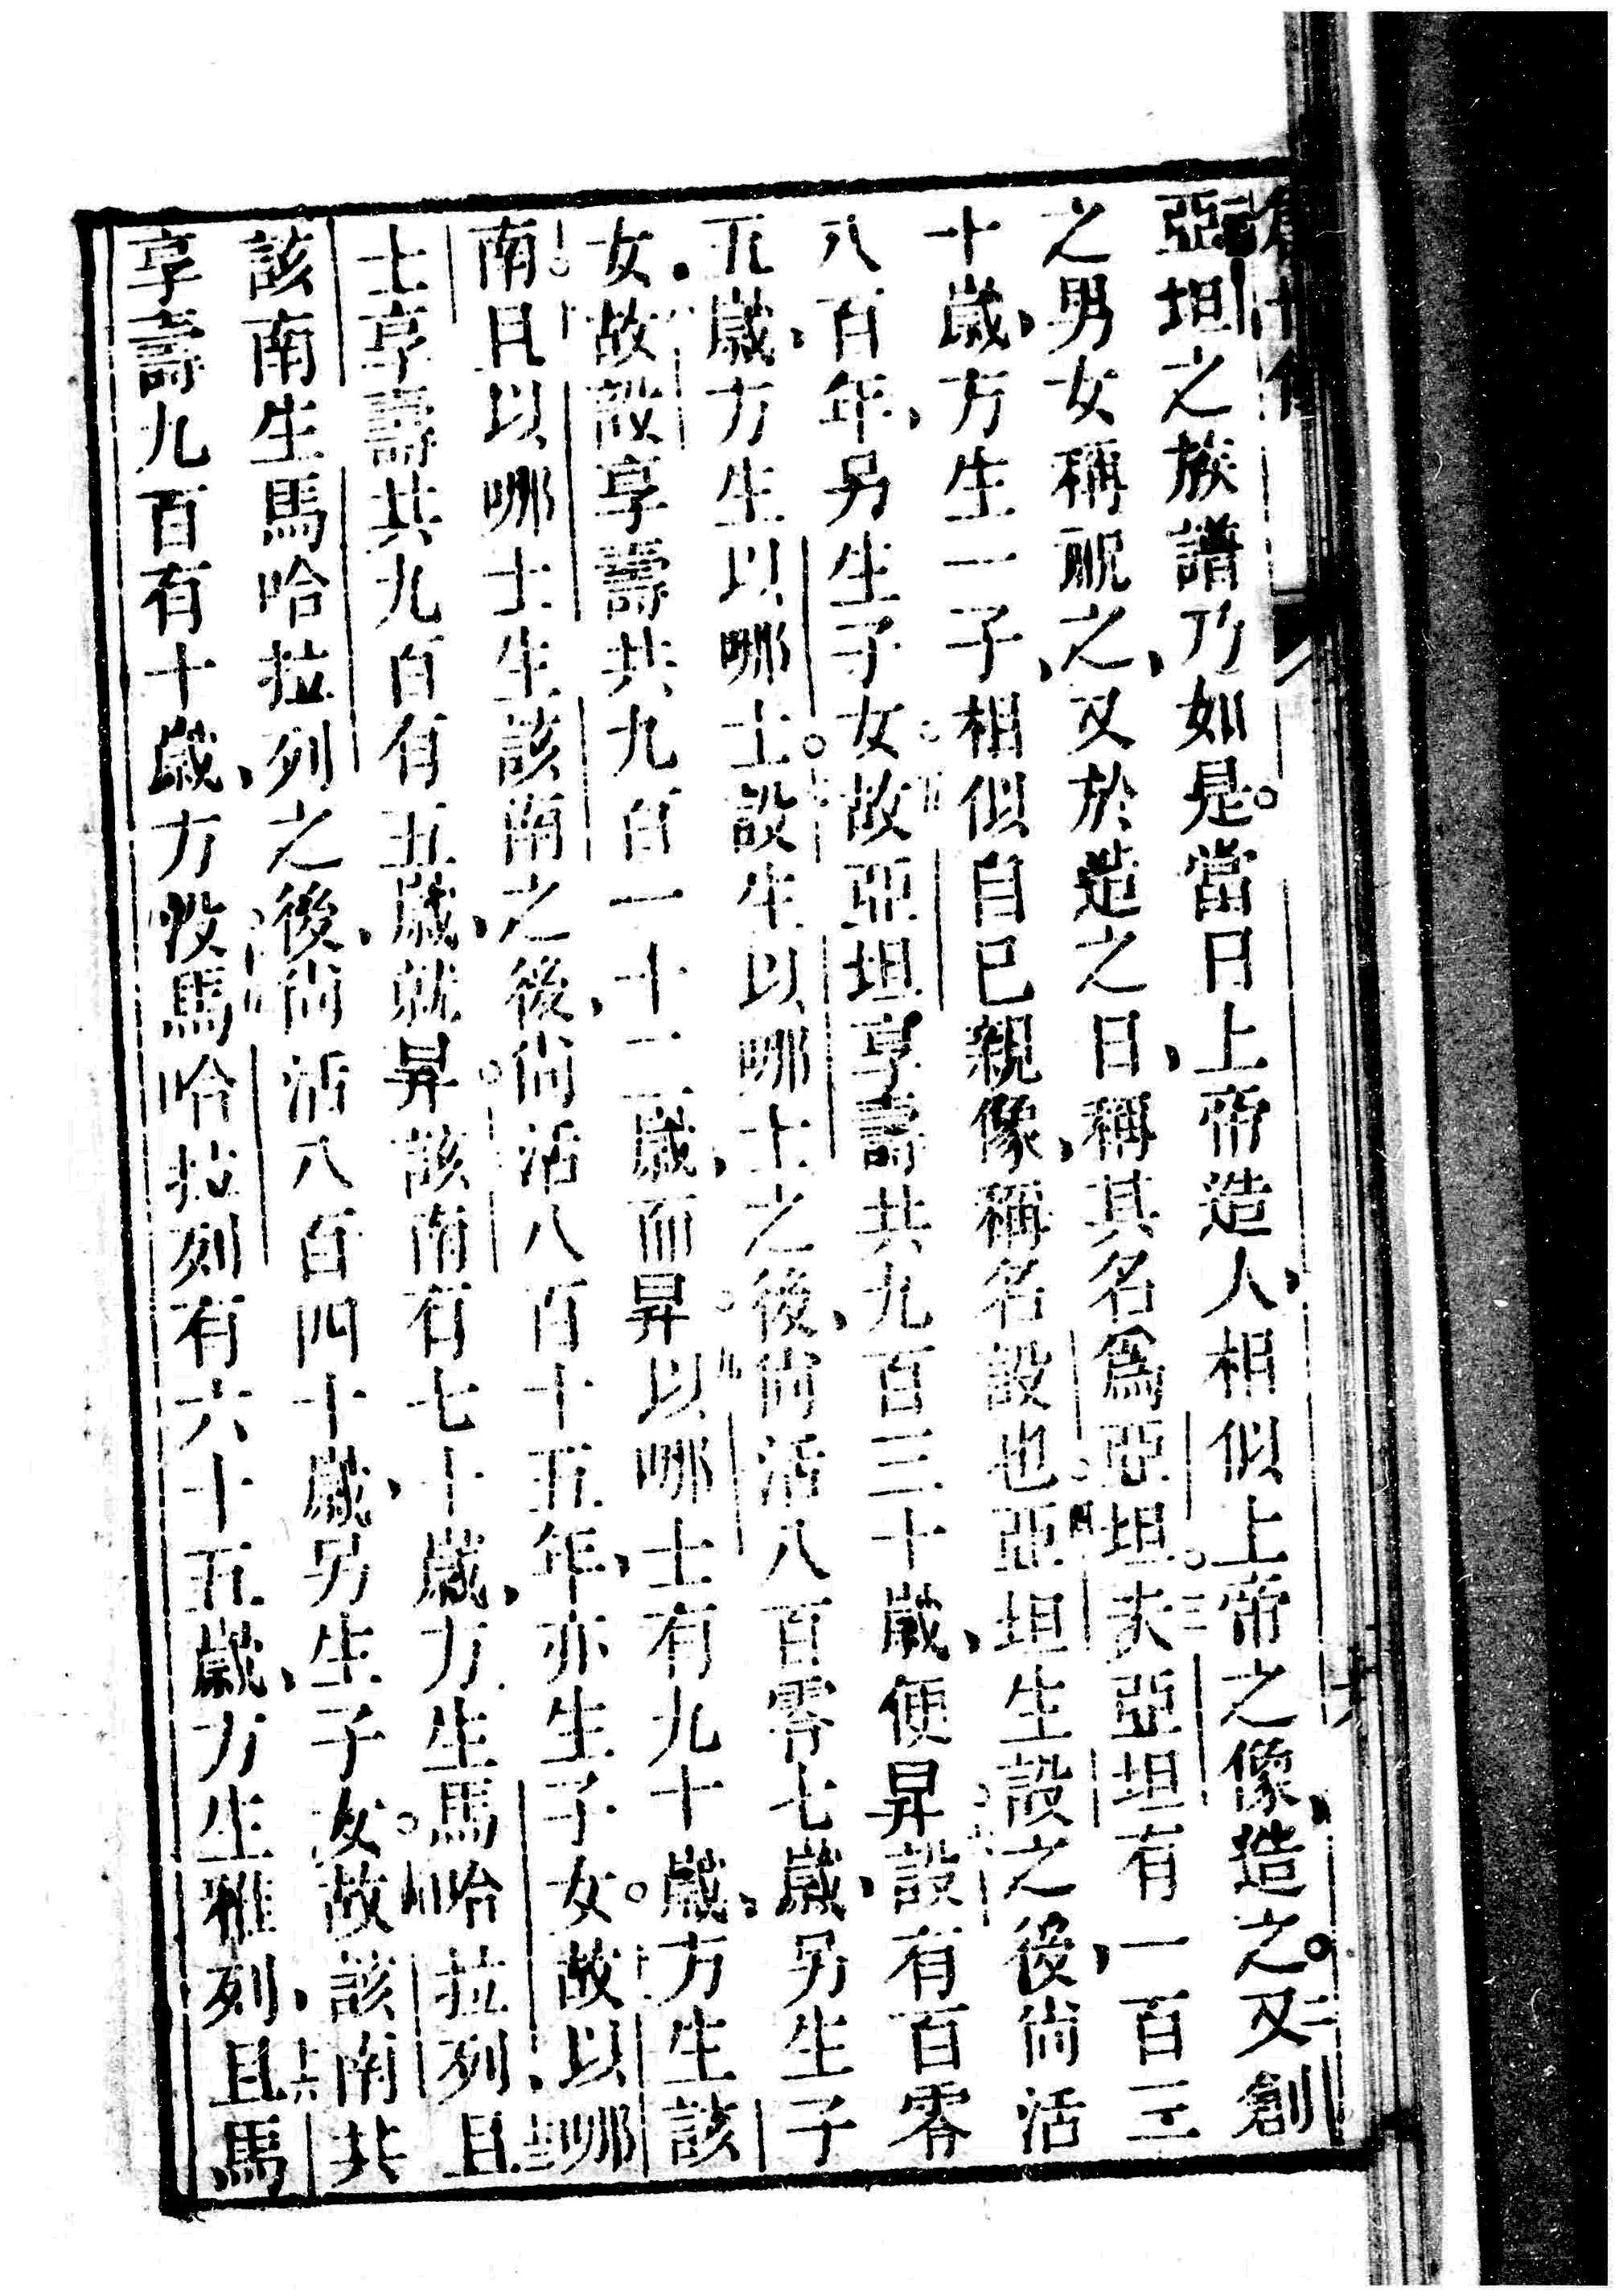 亞坦之族譜乃如是。當日上帝造人、相似上帝之像、造之。二又創
之男女稱祝之、又於造之日、稱其名爲亞坦。三夫亞坦有一百三
十歲、方生一子、相似自己親像、稱名設也。四亞坦生設之後、尙活
八百年、另生子女。故亞坦享壽共九百三十歲、便昇。設有百零
五歲、方生以哪士。設生以哪士之後、尙活八百零七歲、另生子
女。故設享壽共九百一十二歲、而昇。以哪士有九十歲、方生該
南。且以哪士生該南之後、尙活八百十五年、亦生子女。故以哪
士享壽共九百有五歲、就昇。該南有七十歲、方生馬哈拉列、且
該南生馬哈拉列之後、尙活八百四十歲、另生子女。故該南共
享壽九百有十歲、方歿。馬哈拉列有六十五歲、方生雅列、且馬